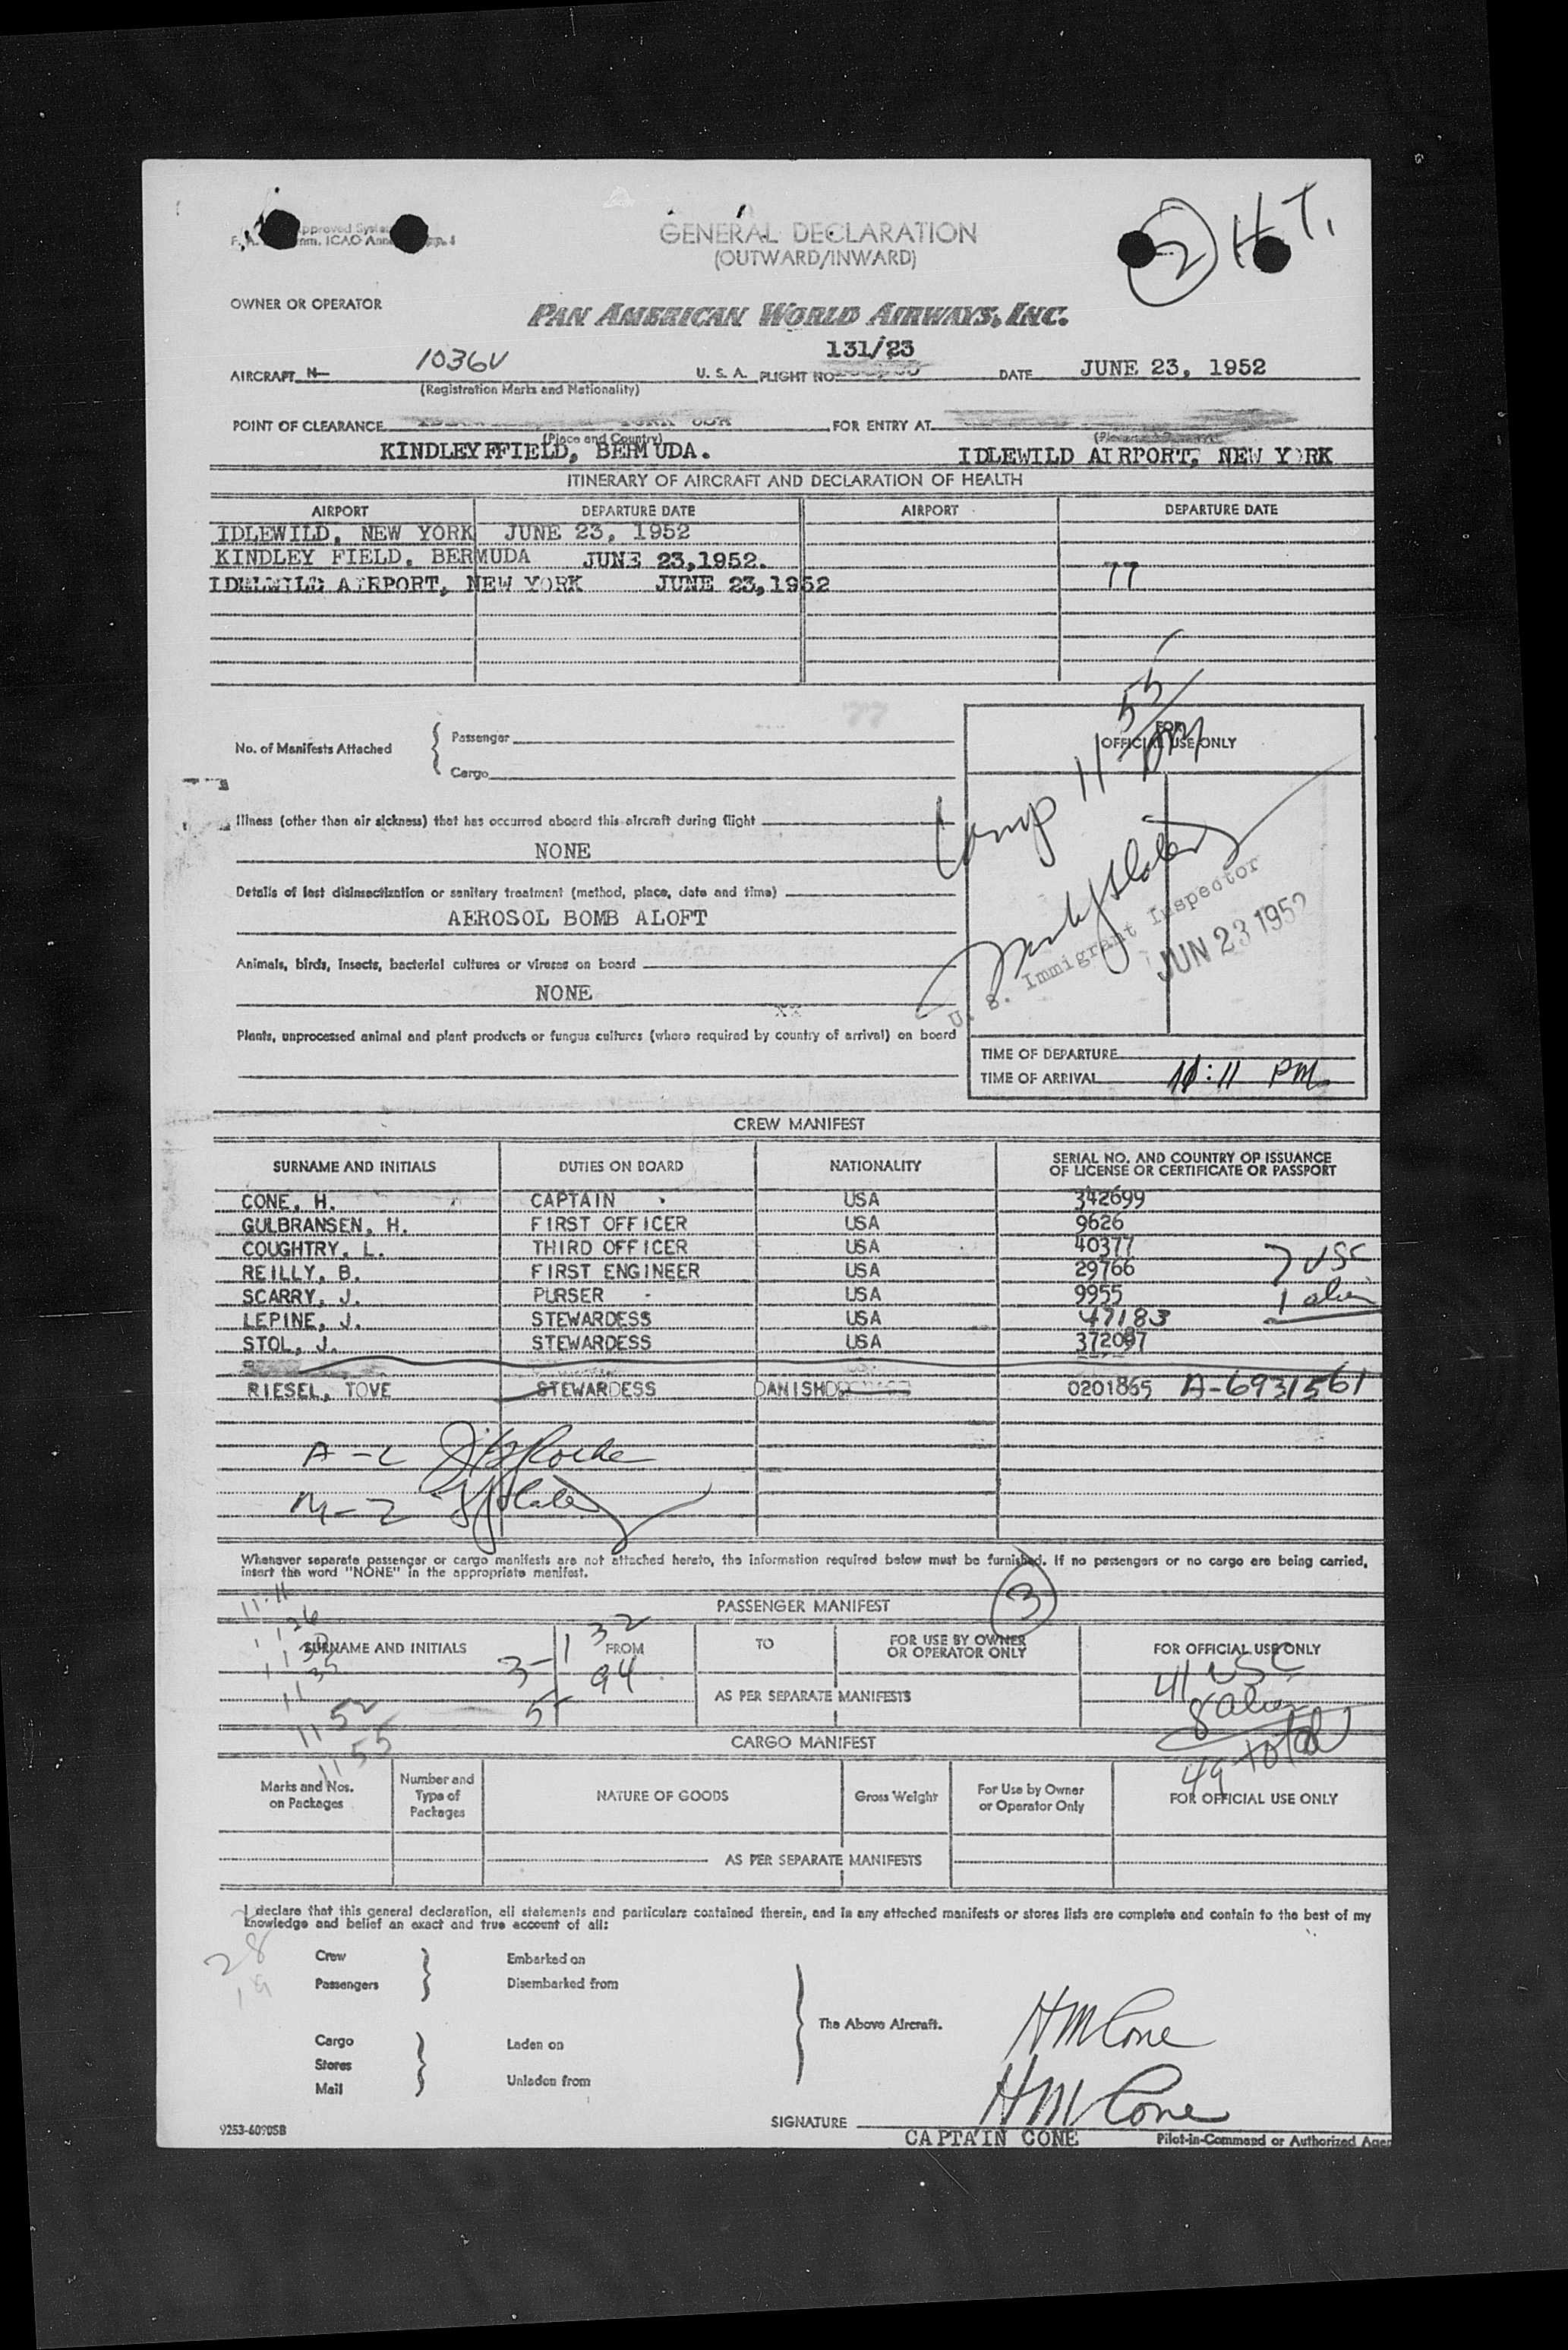 GENERAL DECLARATION
(OUTWARD/INWARD)
2 H T.
OWNER OR OPERATOR
PAN AMERICAN WORLD AIRWAYS, INC.
131/23
AIRCRAFT N- 1036V U. S. A. FLIGHT NO. DATE JUNE 23, 1952
(Registration Marks and Nationality)
POINT OF CLEARANCE FOR ENTRY AT
(Place and Country)
KINDLEYFFIELD, BERMUDA. IDLEWILD AIRPORT, NEW YORK
ITINERARY OF AIRCRAFT AND DECLARATION OF HEALTH
AIRPORT DEPARTURE DATE AIRPORT DEPARTURE DATE
IDLEWILD, NEW YORK JUNE 23, 1952
KINDLEY FIELD, BERMUDA JUNE 23,1952.
IDELWILD AIRPORT, NEW YORK JUNE 23,1952 77
No. of Manifests Attached
Passenger
Cargo
FOR
OFFICIAL USE ONLY
Comp 11 55 PM
Illness (other than air sickness) that has occurred aboard this aircraft during flight
NONE
Details of last disinsectization or sanitary treatment (method, place, date and time)
AEROSOL BOMB ALOFT
U. S. Immigrant Inspector
JUN 23 1952
Animals, birds, insects, bacterial cultures or viruses on board
NONE
XX
Plants, unprocessed animal and plant products or fungus cultures (where required by country of arrival) on board
TIME OF DEPARTURE
TIME OF ARRIVAL 11:11 PM
CREW MANIFEST
SURNAME AND INITIALS DUTIES ON BOARD NATIONALITY SERIAL NO. AND COUNTRY OF ISSUANCE
OF LICENSE OR CERTIFICATE OR PASSPORT
CONE, H. CAPTAIN USA 342699
GULBRANSEN, H. FIRST OFFICER USA 9626
COUGHTRY, L. THIRD OFFICER USA 40377
REILLY, B. FIRST ENGINEER USA 29766 7 USC
SCARRY, J. PURSER USA 9955 1 alien
LEPINE, J. STEWARDESS USA 47183
STOL, J. STEWARDESS USA 372087
RIESEL, TOVE STEWARDESS DANISH 0201865 A-6931561
A-L
M-Z
Whenever separate passenger or cargo manifests are not attached hereto, the information required below must be furnished. If no passengers or no cargo are being carried,
insert the word "NONE" in the appropriate manifest.
PASSENGER MANIFEST 3
SURNAME AND INITIALS FROM TO FOR USE BY OWNER
OR OPERATOR ONLY FOR OFFICIAL USE ONLY
11:11
11 26
11 35
11 52
11 55
3-1 32
94
5-
41 USC
8 alien
49 total
AS PER SEPARATE MANIFESTS
CARGO MANIFEST
Marks and Nos.
on Packages
Number and
Type of
Packages
NATURE OF GOODS
Gross Weight
For Use by Owner
or Operator Only
FOR OFFICIAL USE ONLY
AS PER SEPARATE MANIFESTS
I declare that this general declaration, all statements and particulars contained therein, and in any attached manifests or stores lists are complete and contain to the best of my
knowledge and belief an exact and true account of all:
28
19
Crew Embarked on
Passengers Disembarked from
The Above Aircraft.
Cargo Laden on
Stores
Mail Unladen from
HM Cone
HM Cone
SIGNATURE
CAPTAIN CONE Pilot-in-Command or Authorized Agen
9253-6090SB